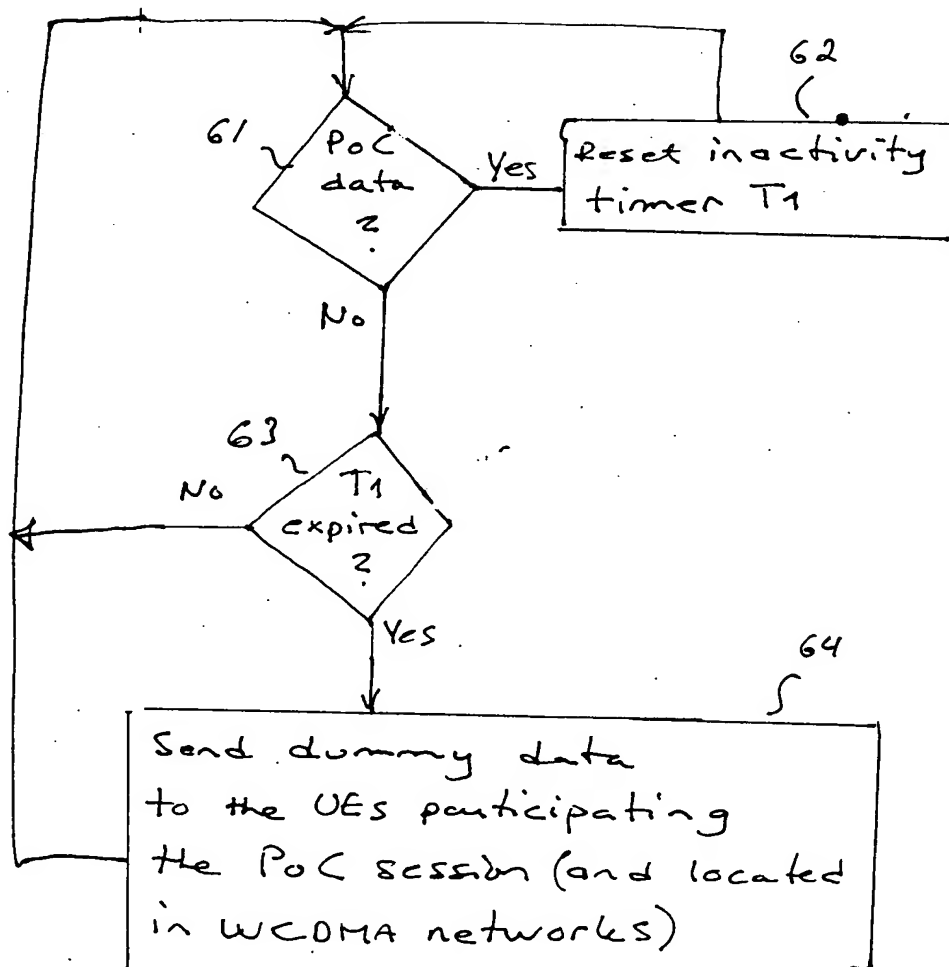 62
61
PoC
data
?
Yes
Reset inactivity
timer T1
No
63
No
T1
expired
?
Yes
64
Send dummy data
to the UEs participating
the PoC session (and located
in WCDMA networks)